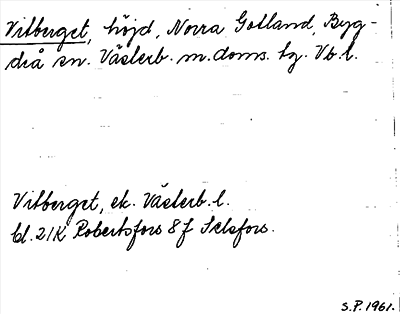 Vitberget, höjd, Norra Gotland, Byg-
deå sn. Västerb. m. doms. tg. Vb. l.
Vitberget, ek. Västerb. l.
bl. 21K Robertsfors 8 f Selsfors.
S.P. 1961.